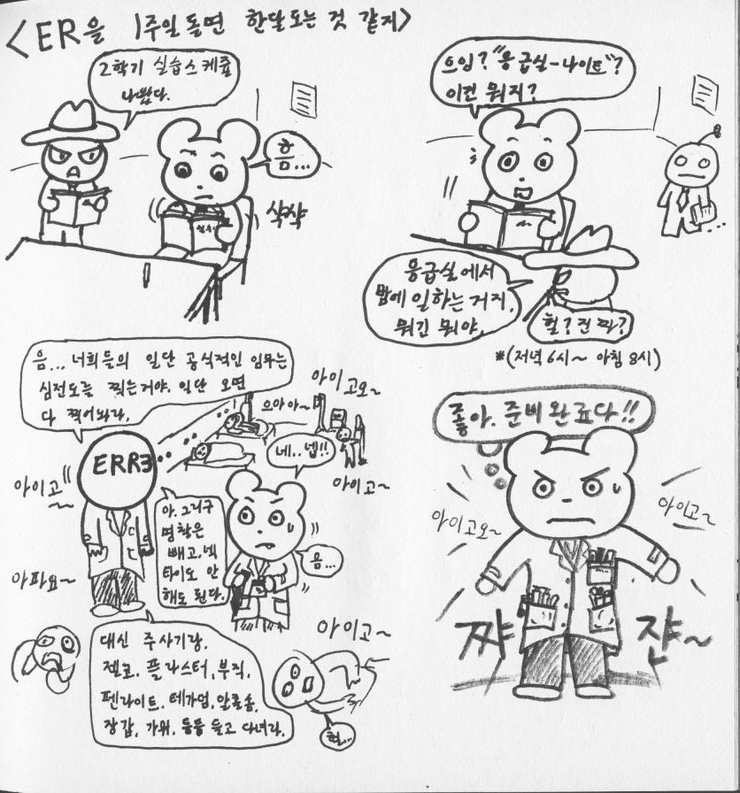 <ER을 1주일 돌면 한달 도는 것 같지>
2학기 실습스케쥴
나왔다.
흠...
샥샥
으잉? "응급실-나이트"?
이런 뭐지?
응급실에서
밤에 일하는 거지.
뭐긴 뭐야.
헐?
*(저녁 6시~ 아침 8시)
음... 너희들의 일단 공식적인 임무는
심전도를 찍는거야. 일단 오면
다 찍어놔라.
아이고오~
으아아~
ERR3
네..넵!!
아이고
아이고~
아. 그리구
명찰은
빼고, 넥
타이도 안
해도 된다.
음...
아파요~
아이고~
대신 주사기랑,
젤코, 플라스터, 부직,
펜라이트, 테가덤, 알콜솜,
장갑, 가위, 등등 들고 다녀라.
헉...
좋아. 준비완료다!!
아이고오~
아이고~
쨔
쟌~